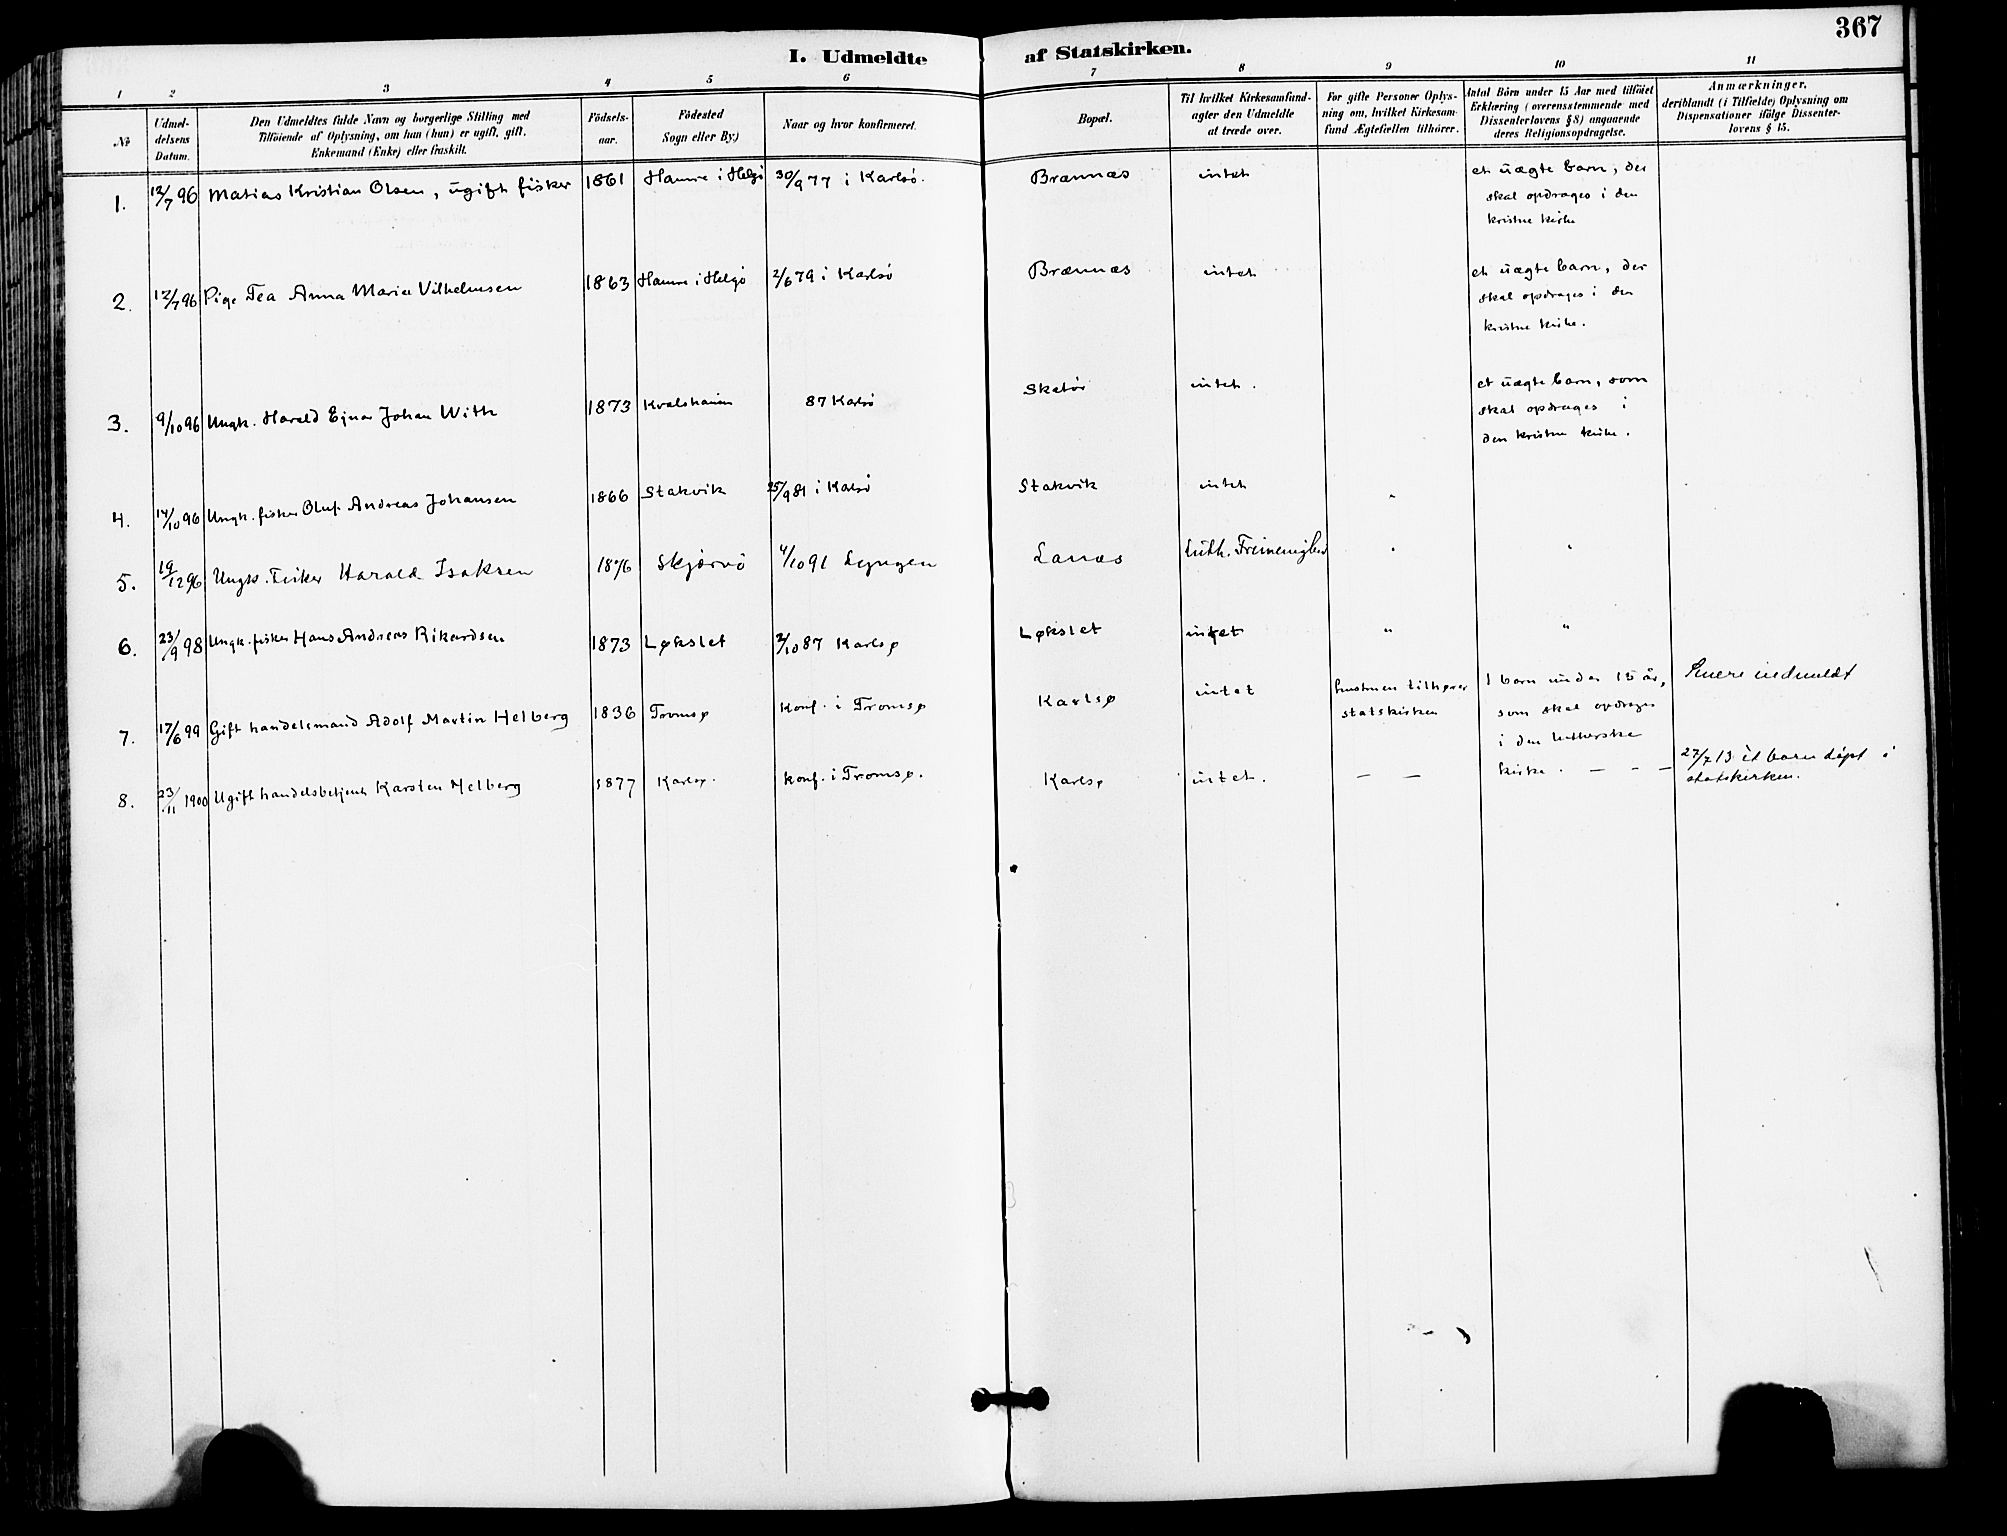 367
I. Udmeldte af Statskirken.
1 2 3 4 5 6 7 8 9 10 11
No
Udmel-
delsens
Datum.
Den Udmeldtes fulde Navn og borgerlige Stilling med
Tilföiende af Oplysning, om han (hun) er ugift, gift,
Enkemand (Enke) eller fraskilt.
Födsels-
aar.
Födested
Sogn eller By.)
Naar og hvor konfirmeret.
Bopæl.
Til hvilket Kirkesamfund-
agter den Udmeldte
at træde over.
For gifte Personer Oplys-
ning om, hvilket Kirkesam-
fund Ægtefællen tilhörer.
Antal Börn under 15 Aar med tilföiet
Erklæring (overensstemmende med
Dissenterlovens § 8) angaaende
deres Religionsopdragelse.
Anmærkninger,
deriblandt (i Tilfælde) Oplysning om
Dispensationer ifölge Dissenter-
lovens § 15.
1. 12/7 96 Matias Kristian Olsen, ugift fisker 1861 Hamre i Helgö 30/9 77 i Karlsö. Brænnæs intet et uægte barn, der
skal opdrages i den
kristne kirke
2. 12/7 96 Pige Tea Anna Marie Vilhelmsen 1863 Hamre i Helgö 2/6 79 i Karlsö Brænnæs intet et uægte barn, der
skal opdrages i den
kristne kirke.
3. 9/10 96 Ungk. Harald Ejnar Johan With 1873 87 Karlsö intet. et uægte barn, som
skal opdrages i
den kristne kirke.
4. 14/10 96 Ungk. fisker Oluf Andreas Johansen 1866 Stakvik 25/9 81 i Karlsö Stakvik intet "
5. 19/12 96 Ungk. Fisker Harald Isaksen 1876 Skjærvö 4/10 91 Lyngen Lanæs Luth. " "
6. 23/9 98 Ungk. fisker Hans Andreas Rikardsen 1873 Løkslet 2/10 87 Karlsø Løkslet intet " "
7. 17/6 99 Gift handelsmand Adolf Martin Helberg 1836 Tromsø konf. i Tromsø Karlsø intet hustruen tilhører
statskirken
1 barn under 15 år,
som skal opdrages
i den lutherske
kirke. — — —
Senere indmeldt
8. 23/11 1900 Ugift handelsbetjent Karsten Helberg 1877 Karlsø. konf. i Tromsø. Karlsø intet. — —
27/7 13 et barn døpt i
statskirken.